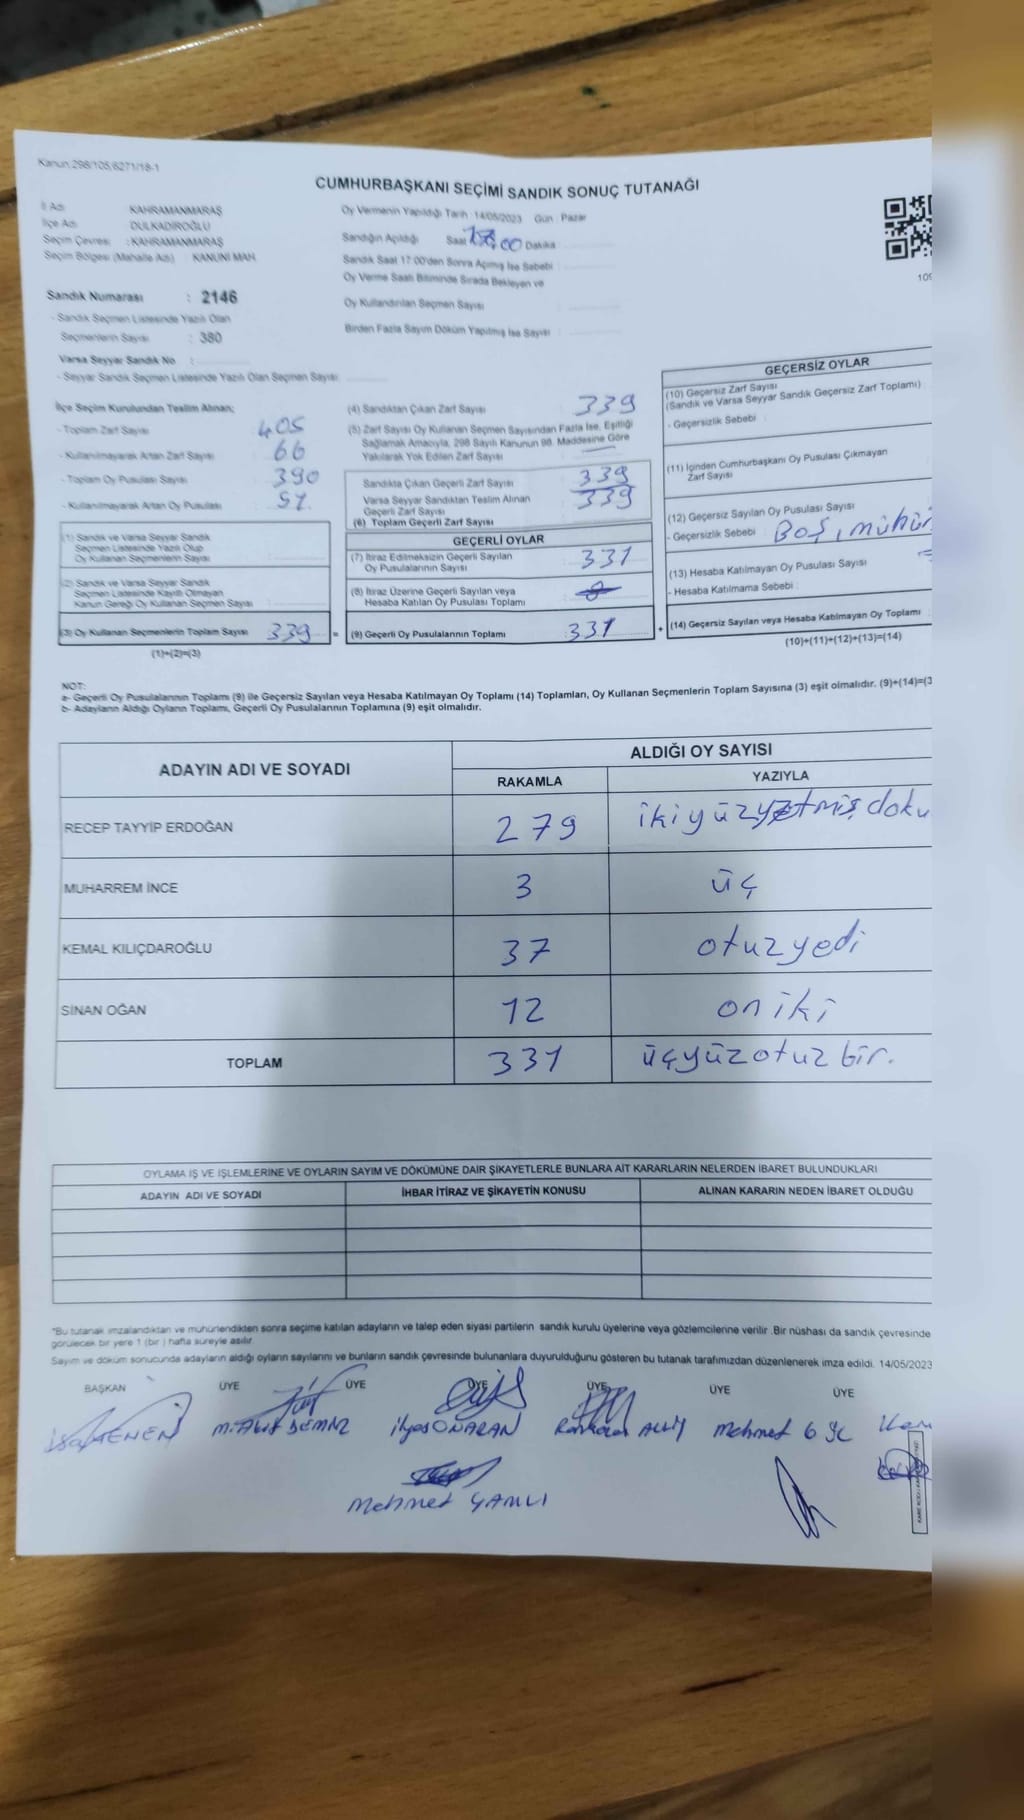 Kanun.298/105,6271/18-1
CUMHURBAŞKANI SEÇİMİ SANDIK SONUÇ TUTANAĞI
İl Adı KAHRAMANMARAŞ
İlçe Adı DULKADİROĞLU
Seçim Çevresi : KAHRAMANMARAŞ
Seçim Bölgesi (Mahalle Adı) KANUNİ MAH.
Oy Vermenin Yapıldığı Tarih : 14/05/2023 Gün : Pazar
Sandığın Açıldığı Saat Dakika
Sandık Saat 17:00'den Sonra Açılmış İse Sebebi :
Oy Verme Saati Bitiminde Sırada Bekleyen ve
Oy Kullandırılan Seçmen Sayısı
Birden Fazla Sayım Döküm Yapılmış İse Sayısı :
109
Sandık Numarası : 2146
- Sandık Seçmen Listesinde Yazılı Olan
Seçmenlerin Sayısı : 380
Varsa Seyyar Sandık No :
- Seyyar Sandık Seçmen Listesinde Yazılı Olan Seçmen Sayısı
İlçe Seçim Kurulundan Teslim Alınan;
- Toplam Zarf Sayısı 405
- Kullanılmayarak Artan Zarf Sayısı 66
- Toplam Oy Pusulası Sayısı 390
- Kullanılmayarak Artan Oy Pusulası 51.
(1) Sandık ve Varsa Seyyar Sandık
Seçmen Listesinde Yazılı Olup
Oy Kullanan Seçmenlerin Sayısı
(2) Sandık ve Varsa Seyyar Sandık
Seçmen Listesinde Kayıtlı Olmayan
Kanun Gereği Oy Kullanan Seçmen Sayısı
(3) Oy Kullanan Seçmenlerin Toplam Sayısı 339 =
(1)+(2)=(3)
(4) Sandıktan Çıkan Zarf Sayısı 339
(5) Zarf Sayısı Oy Kullanan Seçmen Sayısından Fazla İse, Eşitliği
Sağlamak Amacıyla, 298 Sayılı Kanunun 98. Maddesine Göre
Yakılarak Yok Edilen Zarf Sayısı
Sandıkta Çıkan Geçerli Zarf Sayısı 339
Varsa Seyyar Sandıktan Teslim Alınan
Geçerli Zarf Sayısı 339
(6) Toplam Geçerli Zarf Sayısı
GEÇERLİ OYLAR
(7) İtiraz Edilmeksizin Geçerli Sayılan
Oy Pusulalarının Sayısı 331
(8) İtiraz Üzerine Geçerli Sayılan veya
Hesaba Katılan Oy Pusulası Toplamı
(9) Geçerli Oy Pusulalarının Toplamı 331 +
GEÇERSİZ OYLAR
(10) Geçersiz Zarf Sayısı
(Sandık ve Varsa Seyyar Sandık Geçersiz Zarf Toplamı)
- Geçersizlik Sebebi :
(11) İçinden Cumhurbaşkanı Oy Pusulası Çıkmayan
Zarf Sayısı
(12) Geçersiz Sayılan Oy Pusulası Sayısı
- Geçersizlik Sebebi : Boş, mühür
(13) Hesaba Katılmayan Oy Pusulası Sayısı
- Hesaba Katılmama Sebebi :
(14) Geçersiz Sayılan veya Hesaba Katılmayan Oy Toplamı
(10)+(11)+(12)+(13)=(14)
NOT:
a- Geçerli Oy Pusulalarının Toplamı (9) ile Geçersiz Sayılan veya Hesaba Katılmayan Oy Toplamı (14) Toplamları, Oy Kullanan Seçmenlerin Toplam Sayısına (3) eşit olmalıdır. (9)+(14)=(3
b- Adayların Aldığı Oyların Toplamı, Geçerli Oy Pusulalarının Toplamına (9) eşit olmalıdır.
ADAYIN ADI VE SOYADI
ALDIĞI OY SAYISI
RAKAMLA YAZIYLA
RECEP TAYYİP ERDOĞAN 279 ikiyüzyetmişdoku
MUHARREM İNCE 3 üç
KEMAL KILIÇDAROĞLU 37 otuzyedi
SİNAN OĞAN 12 oniki
TOPLAM 331 üçyüzotuzbir.
OYLAMA İŞ VE İŞLEMLERİNE VE OYLARIN SAYIM VE DÖKÜMÜNE DAİR ŞİKAYETLERLE BUNLARA AİT KARARLARIN NELERDEN İBARET BULUNDUKLARI
ADAYIN ADI VE SOYADI İHBAR İTİRAZ VE ŞİKAYETİN KONUSU ALINAN KARARIN NEDEN İBARET OLDUĞU
*Bu tutanak imzalandıktan ve mühürlendikten sonra seçime katılan adayların ve talep eden siyasi partilerin sandık kurulu üyelerine veya gözlemcilerine verilir .Bir nüshası da sandık çevresinde
görülecek bir yere 1 (bir ) hafta süreyle asılır.
Sayım ve döküm sonucunda adayların aldığı oyların sayılarını ve bunların sandık çevresinde bulunanlara duyurulduğunu gösteren bu tutanak tarafımızdan düzenlenerek imza edildi. 14/05/2023
BAŞKAN ÜYE ÜYE ÜYE ÜYE ÜYE ÜYE
M.Akif DEMİR İlyas ONARAN Mehmet
Mehmet ÇAMLI